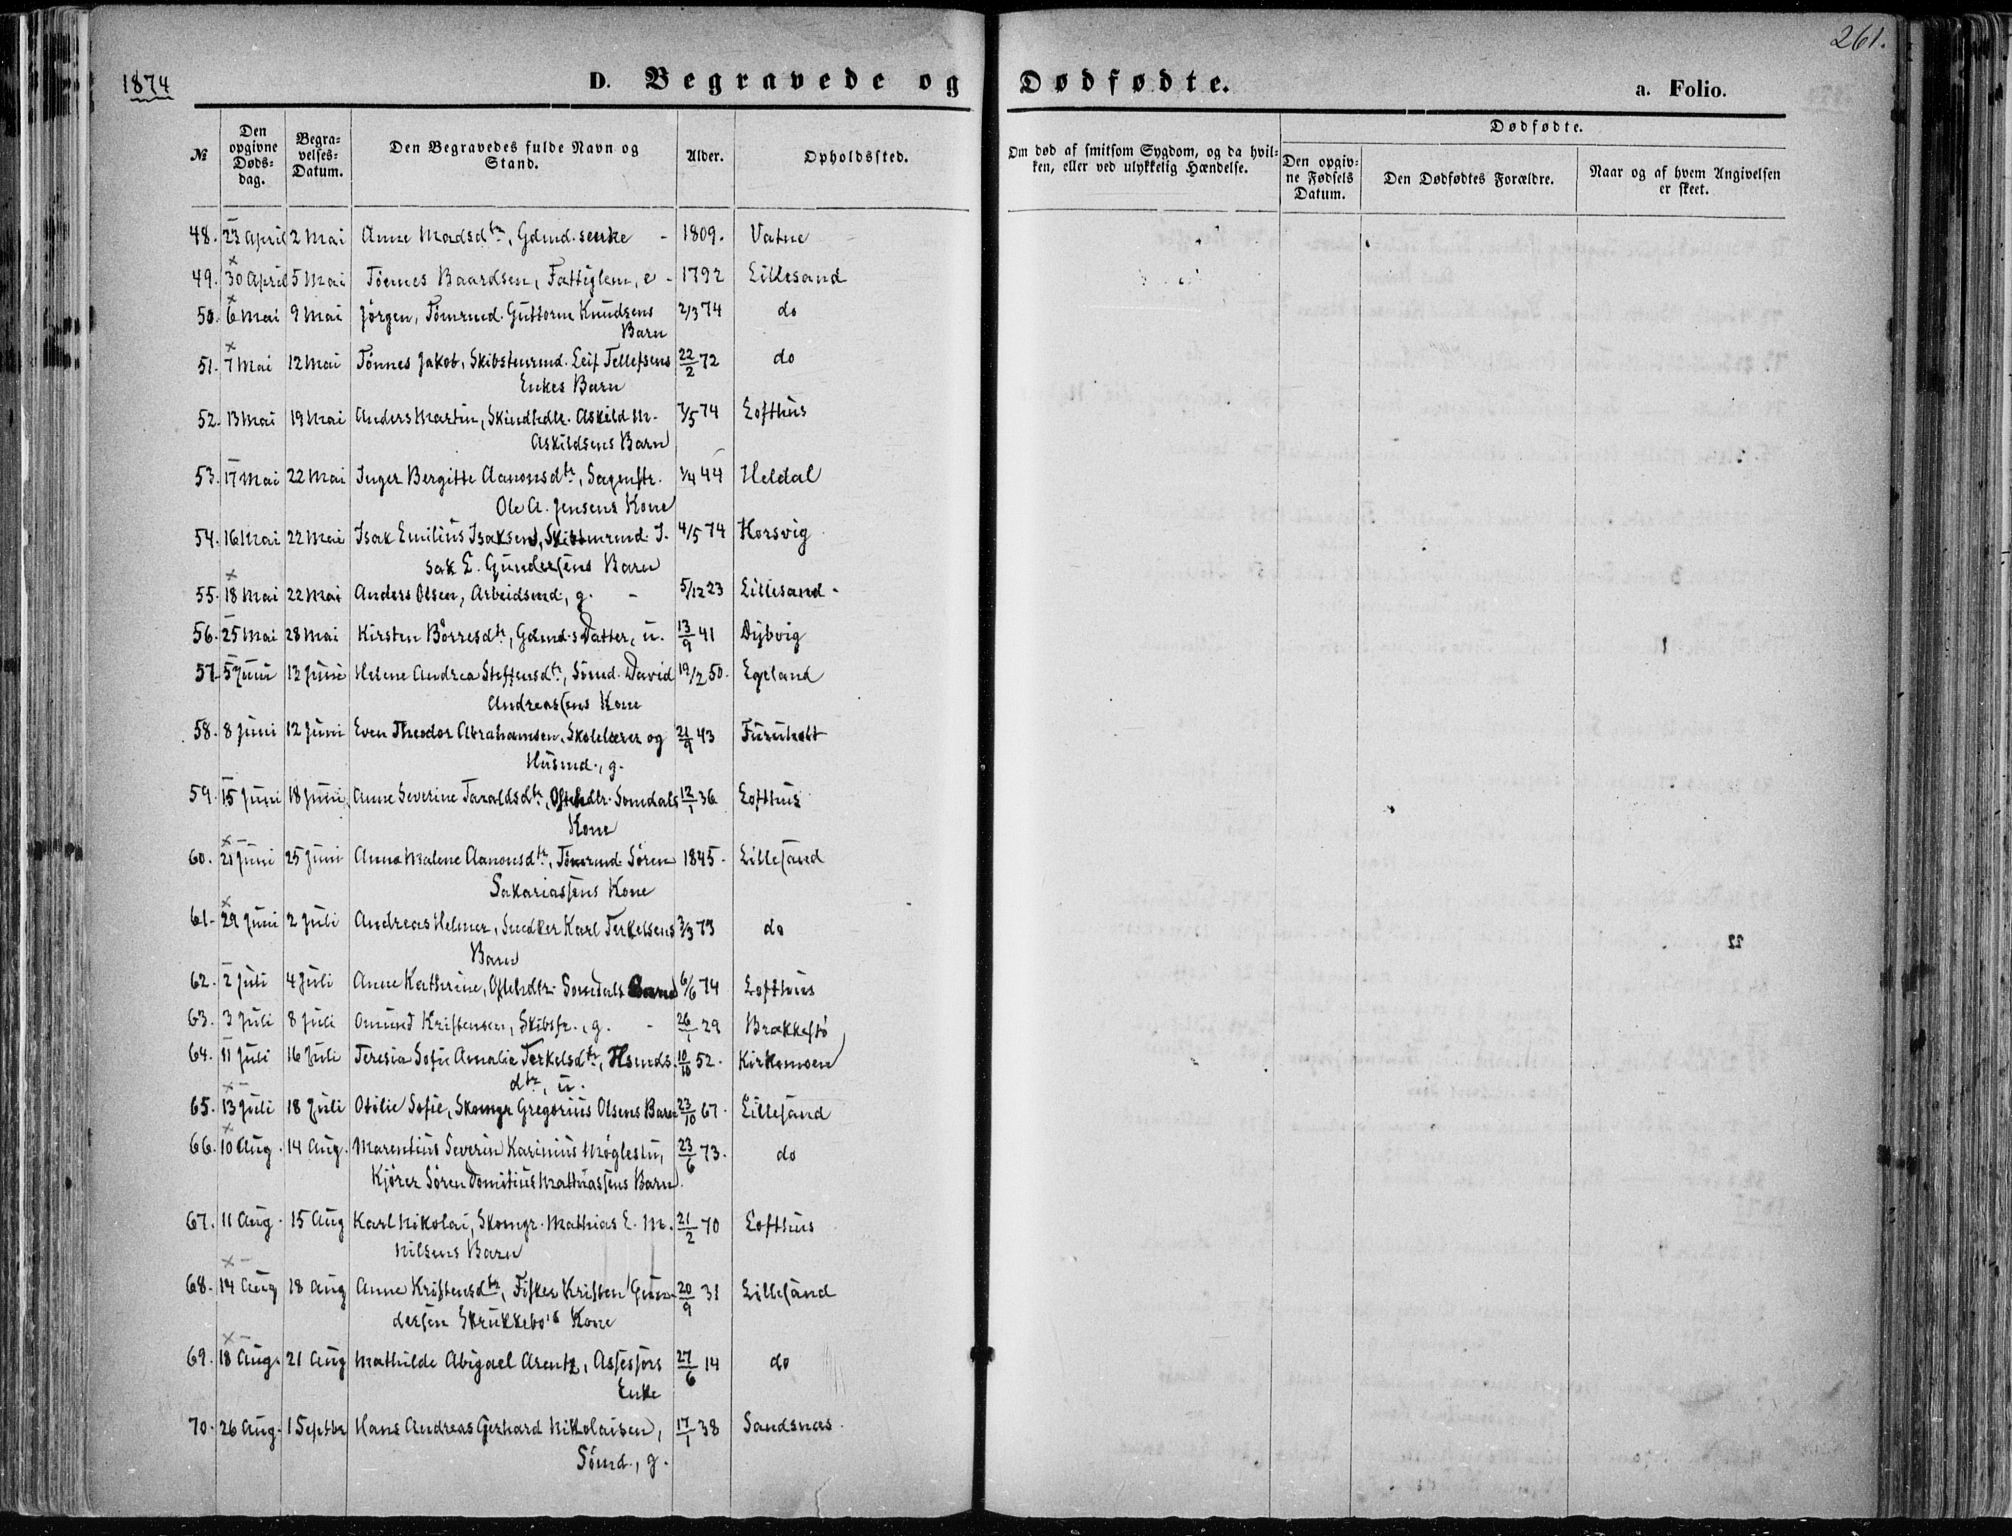 261.
1874
D. Begravede og Dødfødte.
a. Folio.
№
Den opgivne Døds-dag.
Begra-velses-Datum.
Den Begravedes fulde Navn og Stand.
Alder.
Opholdssted.
Om død af smitsom Sygdom, og da hvil-
ken, eller ved ulykkelig Hændelse.
Dødfødte.
Den opgiv-
ne Fødsels
Datum.
Den Dødfødtes Forældre.
Naar og af hvem Angivelsen
er skeet.
48. 23 April 2 Mai Anne Madsdtr, Gdmd.s enke - 1809. Vatne
49. 30 April 5 Mai Tønnes Baardsen, Fattiglem, e - 1792 Lillesand
50. 6 Mai 9 Mai Jörgen, Tömrmd. Guttorm Knudsens 2/3 74 do
Barn
51. 7 Mai 12 Mai Tönnes Jakob, Skibstmrmd. Leif Tellefsens 22/2 72 do
Enkes Barn
52. 13 Mai 19 Mai Anders Martin, Skindhdlr. Askild M. 7/5 74 Lofthus
Askildsens Barn
53. 17 Mai 22 Mai Inger Bergitte Aanonsdtr, Sagmstr. 1/4 44 Heldal
Ole A. Jensens Kone
54. 16 Mai 22 Mai Isak Emilius Isaksen, Skibtmrmd. I- 4/5 74 Korsvig
sak E. Gundersens Barn
55. 18 Mai 22 Mai Anders Olsen, Arbeidsmd, g. - 5/12 23 Lillesand -
56. 25 Mai 28 Mai Kirsten Börresdtr, Gdmd.s Datter, u. 13/9 41 Dybvig
57. 5 Juni 12 Juni Helene Andrea Steffensdtr, Sömd. David 19/2 50. Egeland
Andreassens Kone
58. 8 Juni 12 Juni Even Theodor Abrahamsen, Skolelærer og 21/9 43 Furuholt
Husmd., g.
59. 15 Juni 18 Juni Anne Severine Taraldsdtr, Ostehdlr. Somdals 12/1 36 Lofthus
Kone
60. 21 Juni 25 Juni Anna Malene Aanonsdtr, Tömrmd. Sören 1845. Lillesand
Sakariassens Kone
61. 29 Juni 2 Juli Andreas Helmer, Snedker Karl Terkelsens 3/3 73 do
Barn
62. 2 Juli 4 Juli Anne Kathrine, Ostehdlr. Somdals Barn 6/6 74 Lofthus
63. 3 Juli 8 Juli Omund Kristensen, Skibsfr., g. - 26/1 29 Brækkestö
64. 11 Juli 16 Juli Teresia Sofie Amalie Terkelsdtr, Hsmds. 10/10 52. Kirkemoen
dtr, u.
65. 13 Juli 18 Juli Otolie Sofie, Skomgr Gregorius Olsens Barn 23/10 67. Lillesand
66. 10 Aug. 14 Aug. Marentius Severin Karinius Møglestu, 23/6 73. do
Kjörer Sören Domitius Mathiassens Barn.
67. 11 Aug. 15 Aug Karl Nikolai, Skomgr. Mathias E. M. 21/2 70 Lofthus
Nilsens Barn
68. 14 Aug 18 Aug Anne Kristensdtr, Fisker Kristen Gun- 20/9 31 Lillesand
dersen Skrukkebo's Kone
69. 18 Aug. 21 Aug Mathilde Abigael Arentz, Assessors 27/6 14 do
Enke
70. 26 Aug. 1 Septbr Hans Andreas Gerhard Nikolaisen, 17/1 38 Sandsnæs.
Sömd., g.